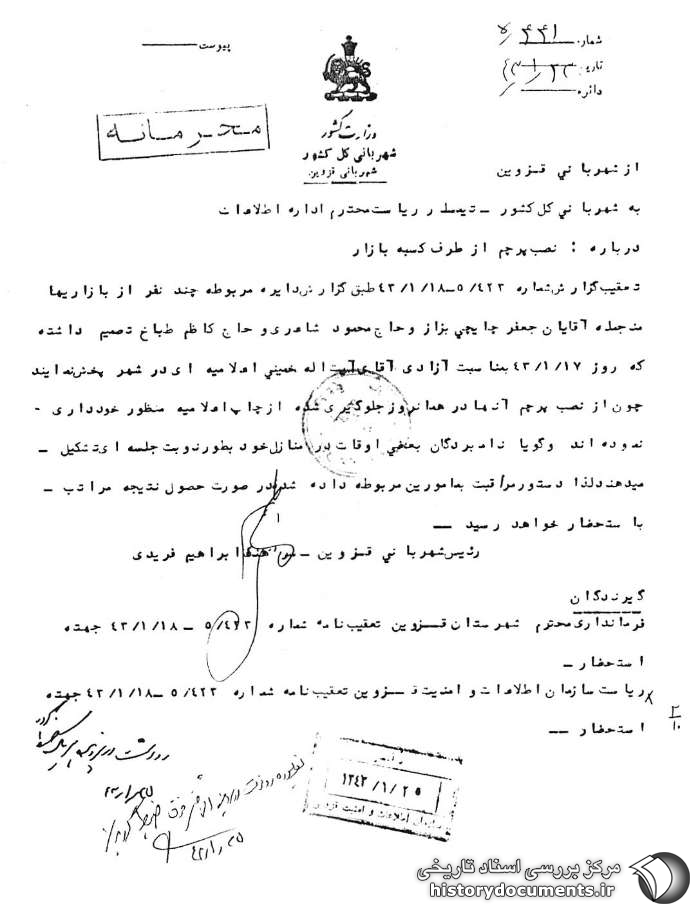 شماره ۵/۴۴۱
تاریخ ۴۳/۱/۲۳
دائره
پیوست
محرمانه
وزارت کشور
شهربانی کل کشور
شهربانی قزوین
از شهربانی قزوین
به شهربانی کل کشور ــ تیمسار ریاست محترم اداره اطلاعات
درباره : نصب پرچم از طرف کسبه بازار
تعقیب گزارش شماره ۵/۴۲۳ــ۴۳/۱/۱۸ طبق گزارش دایره مربوطه چند نفر از بازاریها
منجمله آقایان جعفر چایچی بزاز و حاج محمود شاعری و حاج کاظم طباخ تصمیم داشته
که روز ۴۳/۱/۱۷ بمناسبت آزادی آقای آیت اله خمینی اعلامیه ای در شهر پخش نمایند
چون از نصب پرچم آنها در همانروز جلوگیری شده از چاپ اعلامیه منظور خودداری -
نموده اند وگویا نامبردگان بعضی اوقات در منازل خود بطور نوبت جلسه ای تشکیل ــ
میدهند لذا دستور مراقبت بمامورین مربوطه داده شد در صورت حصول نتیجه مراتب ــ
باستحضار خواهد رسید ــ
رئیس شهربانی قزوین ــ ابراهیم فریدی
گیرندگان
فرمانداری محترم شهرستان قزوین تعقیب نامه شماره ۵/۴۲۳ ــ ۴۳/۱/۱۸ جهته
استحضار ــ
ریاست سازمان اطلاعات و امنیت قزوین تعقیب نامه شماره ۵/۴۲۳ ــ ۴۳/۱/۱۸ جهته
استحضار ــ
۱۳۴۳/۱/۲۵
اطلاعات و امنیت قزوین
۴۳/۱/۲۵
مرکز بررسی اسناد تاریخی
historydocuments.ir